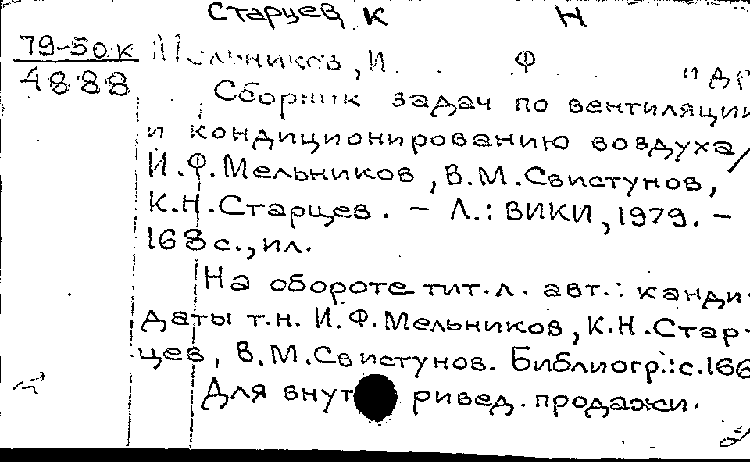 Старцев, К Н
79-50к
4888
Мельников, И. Ф. и др
Сборник задач по вентиляции
и кондиционированию воздуха/
И.Ф.Мельников, В.М.Свистунов,
К.Н.Старцев. – Л.: ВИКИ, 1979. –
168с., ил.
На обороте тит.л. авт.: канди-
даты т.н. И.Ф.Мельников, К.Н.Стар-
цев, В.М.Свистунов. Библиогр.: с.166
Для внут ривед. продажи.